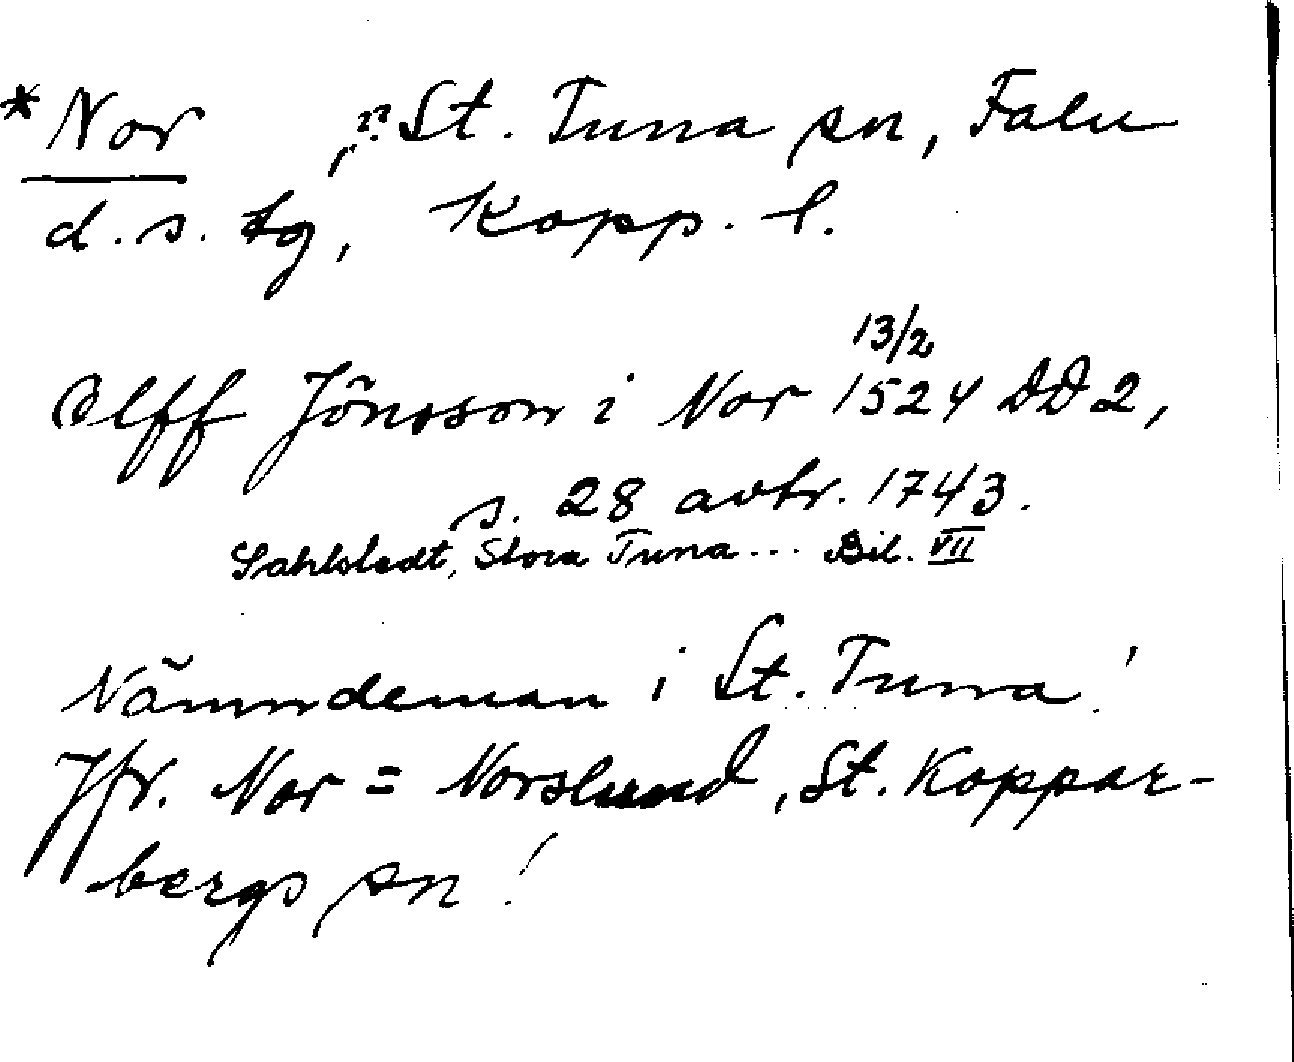 *Nor ?, St. Tuna sn, Falu
d.s. tg, Kopp. l.
13/2
Olff Jönsson i Nor 1524 DD 2,
s. 28 avtr. 1743.
Sahlstedt, Stora Tuna... Bil. VII
Nämndeman i St. Tuna!
Jfr. Nor = Norslund, St. Koppar-
bergs sn!